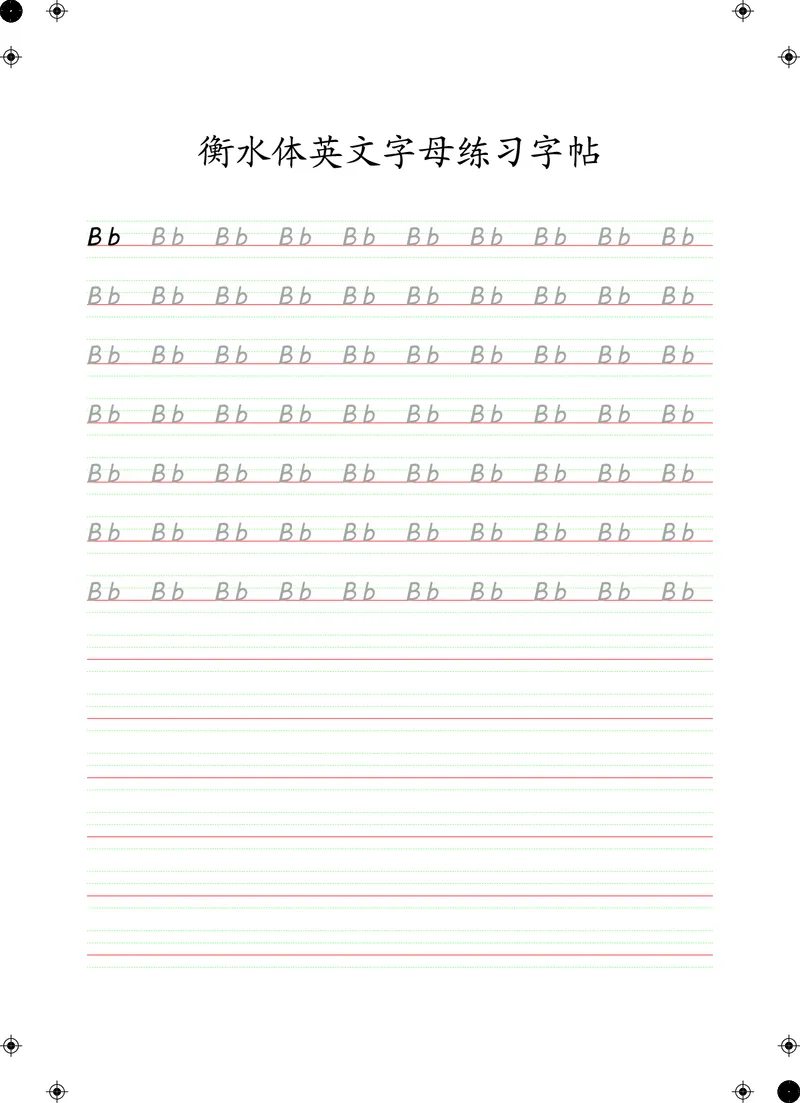 衡水体英文字母练习字帖
B b B b B b B b B b B b B b B b B b B b
B b B b B b B b B b B b B b B b B b B b
B b B b B b B b B b B b B b B b B b B b
B b B b B b B b B b B b B b B b B b B b
B b B b B b B b B b B b B b B b B b B b
B b B b B b B b B b B b B b B b B b B b
B b B b B b B b B b B b B b B b B b B b